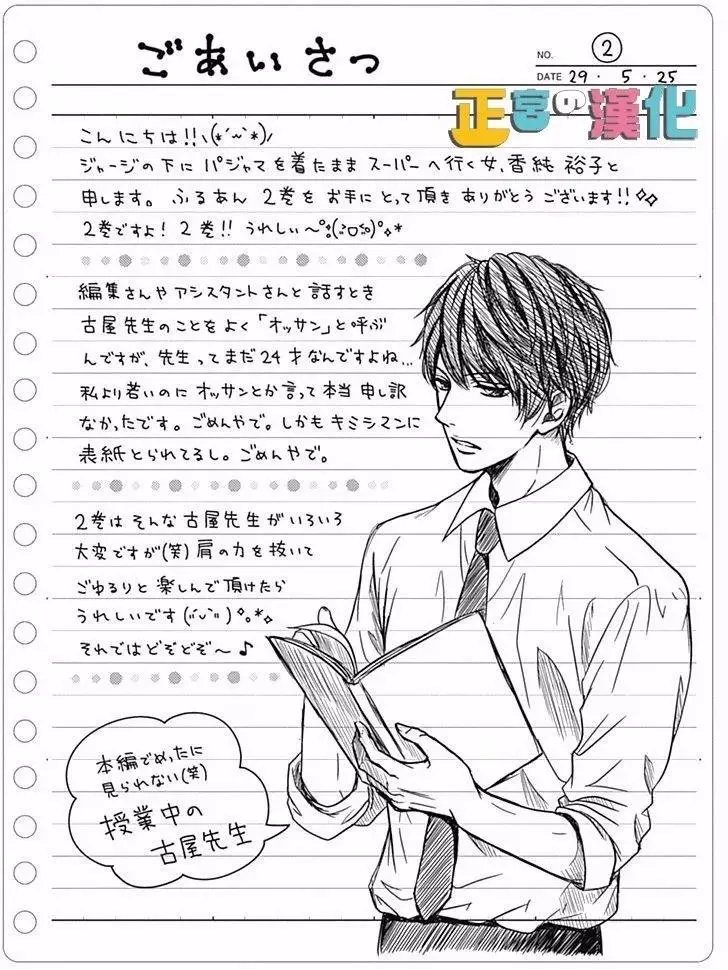 ごあいさつ
NO. ②
DATE 29・5・25
正宮の漢化
こんにちは!!ヽ(*´∽`*)ﾉ
ジャージの下にパジャマを着たままスーパーへ行く女、香純裕子と
申します。ふるあん2巻をお手にとって頂きありがとうございます!!✧✧
2巻ですよ!2巻!!うれしい〜
編集さんやアシスタントさんと話すとき
古屋先生のことをよく「オッサン」と呼ぶ
んですが、先生ってまだ24才なんですよね…
私より若いのにオッサンとか言って本当申し訳
なかったです。ごめんやで。しかもキミシマンに
表紙とられてるし。ごめんやで。
2巻はそんな古屋先生がいろいろ
大変ですが(笑)肩の力を抜いて
ごゆるりと楽しんで頂けたら
うれしいです
それではどぞどぞ〜♪
本編でめったに
見られない(笑)
授業中の
古屋先生